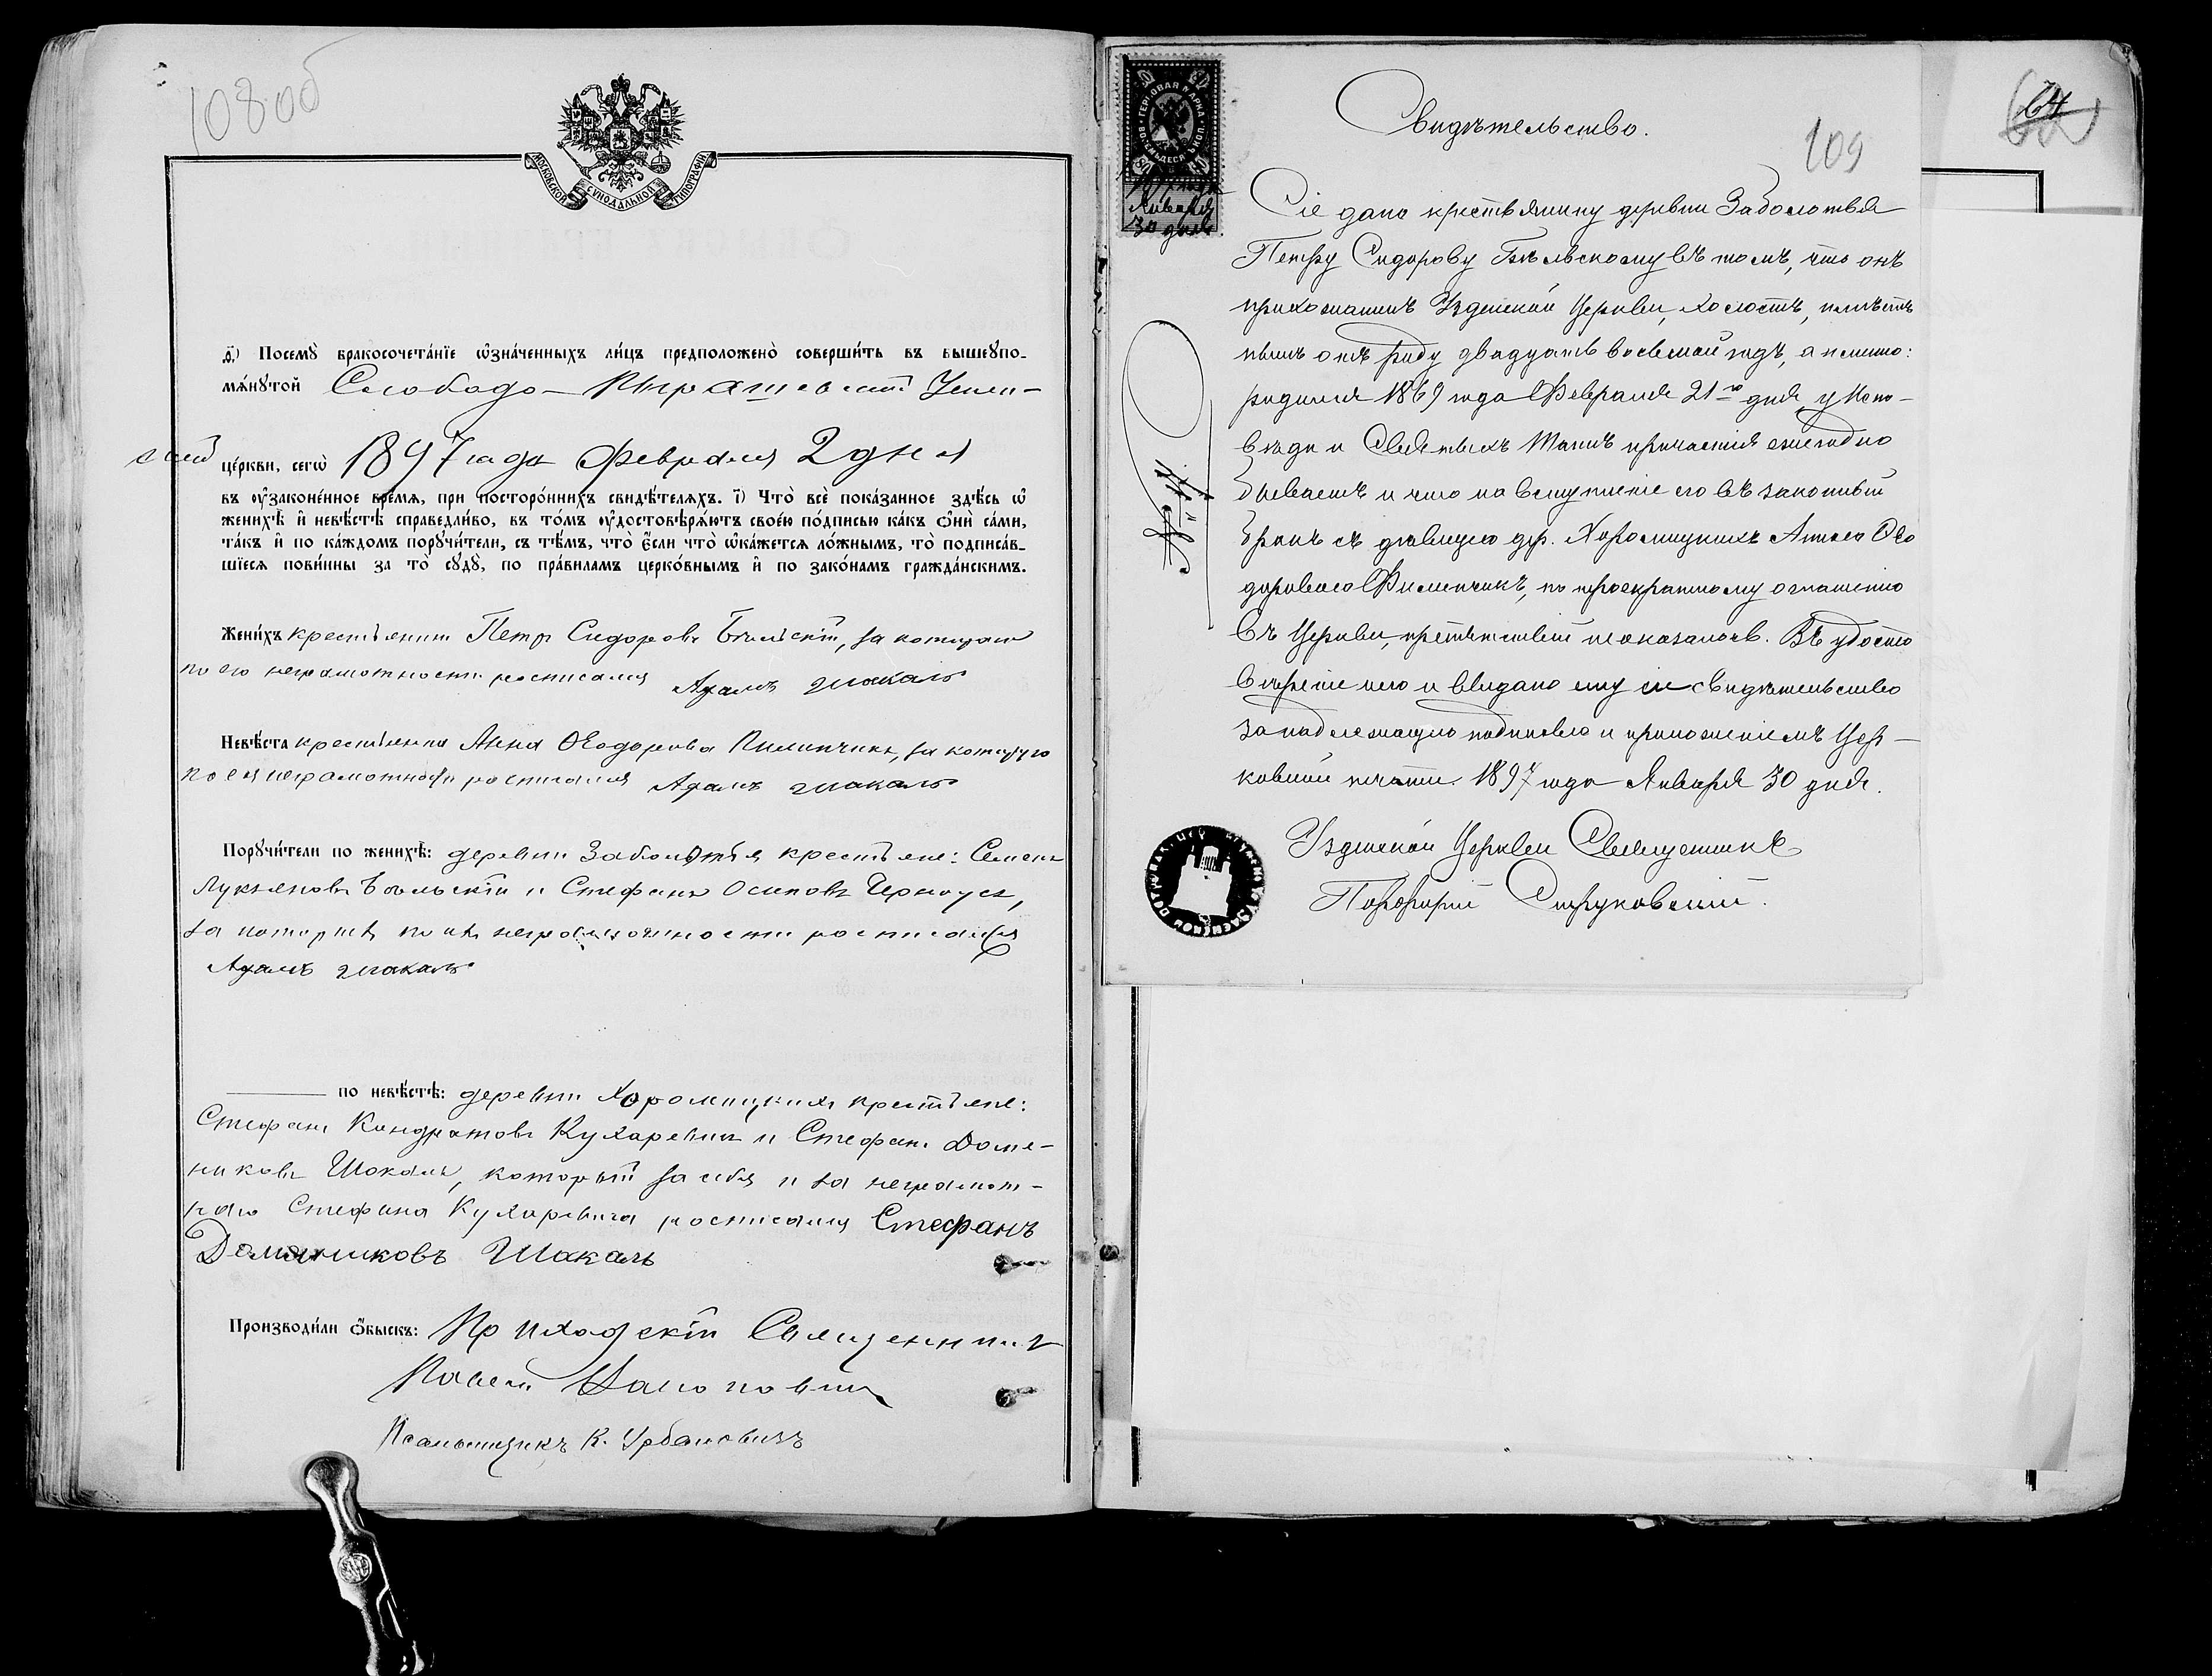 108об
МОСКОВСКОЙ СѴНОДАЛЬНОЙ ТИПОГРАФІИ
д҃і) Посемꙋ̀ бракосочета́нїе ѡ҆зна́ченныхъ ли́цъ предположено̀ соверши́ть въ вышеꙋпо-
мѧ́нꙋтой Слободо-Пырашевской Успен-
ской це́ркви, сегѡ̀ 1897 года Февраля 2 дня
въ ᲂу҆законе́нное вре́мѧ, при посторо́ннихъ свидѣ́телѧхъ. і҃) Что̀ всѐ пока́занное здѣ́сь ѡ҆
женихѣ̀ и҆ невѣ́стѣ справедли́во, въ то́мъ ᲂу҆достовѣрѧ́ютъ свое́ю по́дписью ка́къ ѻ҆нѝ са́ми,
та́къ и҆ по ка́ждомъ порꙋчи́тели, съ тѣ́мъ, что̀ є҆́сли что̀ ѡ҆ка́жетсѧ ло́жнымъ, то̀ подписа́в-
шїесѧ пови́нны за то̀ сꙋдꙋ̀, по пра́виламъ церко́внымъ и҆ по зако́намъ гражда́нскимъ.
Жени́хъ крестьянин Петр Сидоровъ Бѣльскій, за котораго
по его неграмотности росписался Адамъ Шакаль
Невѣ́ста крестьянка Анна Ѳеодорова Пилипчикъ, за которую
по ея неграмотности росписался Адамъ Шакаль
Порꙋчи́тели по женихѣ̀: деревни Заболотья крестьяне: Семенъ
Лукьяновъ Бѣльскій и Стефанъ Осиповъ Черноусъ,
за которыхъ по ихъ неграмотности росписался
Адамъ Шакаль
по невѣ́стѣ: деревни Хоромицкихъ крестьяне:
Стефанъ Кондратовъ Кухаревичъ и Стефанъ Доме-
никовъ Шокаль, который за себя и за неграмот-
наго Стефана Кухаревича росписался Стефанъ
Доминиковъ Шакаль
Производи́ли ѻ҆́быскъ: Приходскій Священникъ
Павелъ
Псаломщикъ К. Урбановичъ
64
109
ГЕРБОВАЯ МАРКА
1897 года
Января
30 дня
Свидѣтельство.
Сіе дано крестьянину деревни Заболотья
Петру Сидорову Бѣльскому въ томъ, что онъ
прихожанинъ Узденской Церкви, холостъ, имѣетъ
нынѣ отъ роду двадцать восьмой годъ, а именно:
родился 1869 года Февраля 21го дня, у Испо-
вѣди и Святыхъ Таинъ причастія ежегодно
бываетъ и что на вступленіе его въ законный
бракъ съ дѣвицею дер. Хоромицкихъ Анною Ѳео
доровою Филипчикъ, по троекратному оглашенію
въ Церкви, препятствій не оказалось. Въ удосто
вѣреніе чего и выдано ему сіе свидѣтельство
за надлежащею подписью и приложеніемъ Цер-
ковной печати. 1897 года Января 30 дня.
Узденской Церкви Священникъ
Порфирій Струковскій.
№ 11